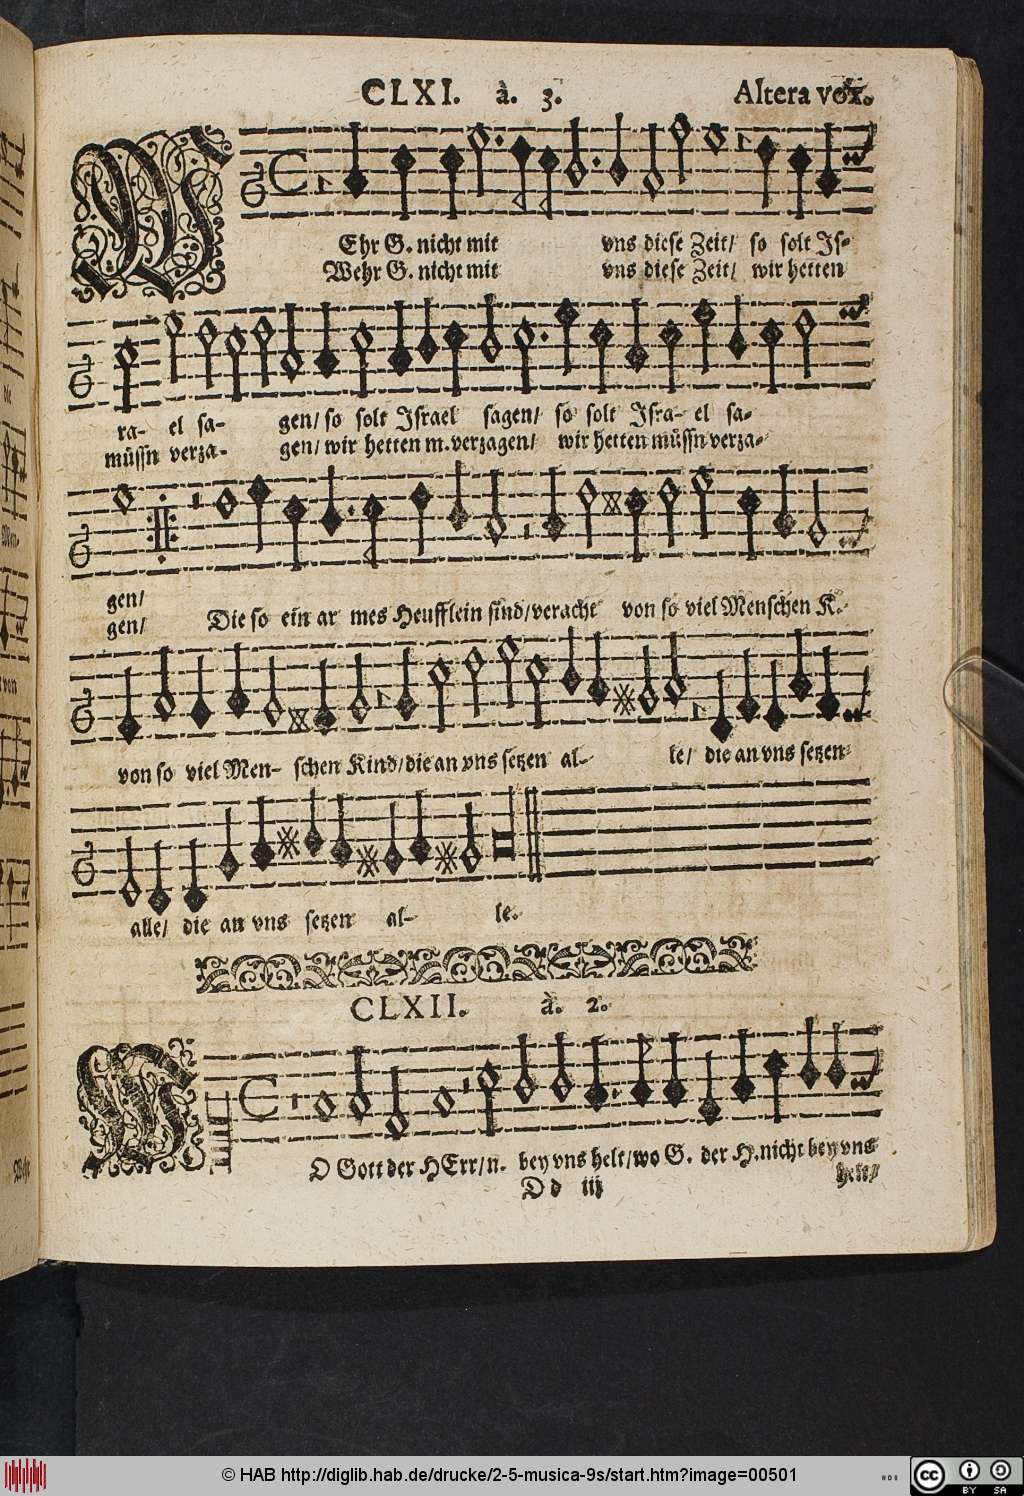 CLXI. à. 3. Altera vox.
WEhr G. nicht mit vns diese Zeit/ so solt Is-
Wehr G. nicht mit vns diese Zeit/ wir hetten
ra- el sa- gen/ so solt Israel sagen/ so solt Isra- el sa-
müssn verza- gen/ wir hetten m. verzagen/ wir hetten müssn verza-
gen/
gen/ Die so ein ar mes Heufflein sind/ veracht von so viel Menschen K.
von so viel Men- schen Kind/ die an vns setzen al- le/ die an vns setzen
alle/ die an vns setzen al- le.
CLXII. à. 2.
WO Gott der HErr/ n. bey vns helt/ wo G. der H. nicht bey vns
D d iij helt/
© HAB http://diglib.hab.de/drucke/2-5-musica-9s/start.htm?image=00501
cc BY SA